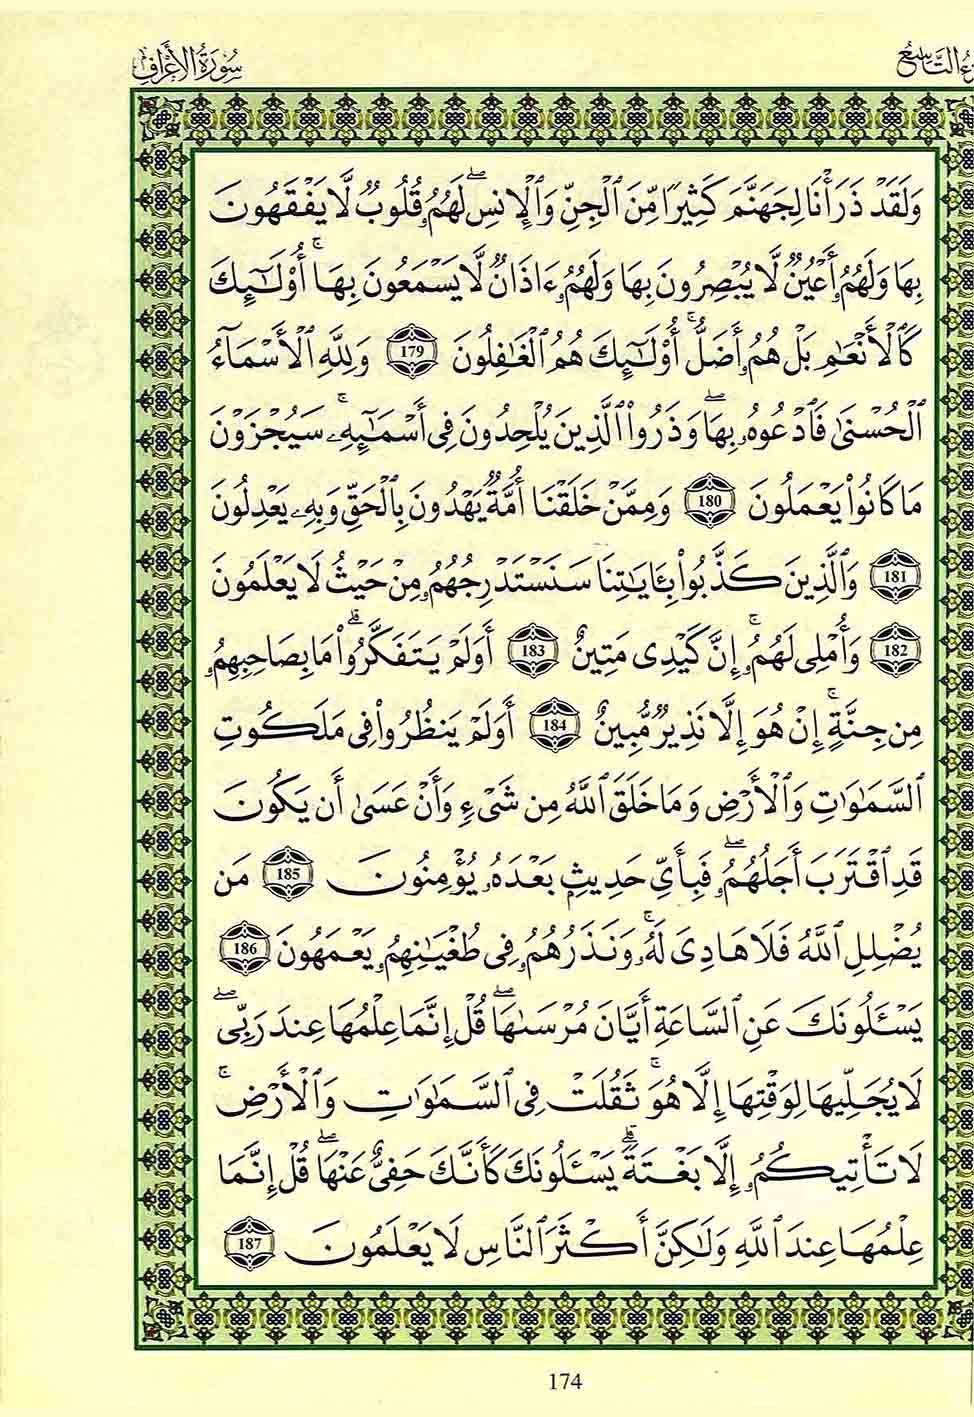 التَّاسِعُ سُورَةُ الأَعْرَافِ
وَلَقَدْ ذَرَأْنَا لِجَهَنَّمَ كَثِيرًا مِّنَ ٱلْجِنِّ وَٱلْإِنسِۖ لَهُمُۥ قُلُوبٌ لَّا يَفْقَهُونَ
بِهَا وَلَهُمُۥٓ أَعْيُنٌ لَّا يُبْصِرُونَ بِهَا وَلَهُمُۥٓ ءَاذَانٌ لَّا يَسْمَعُونَ بِهَاۚ أُوْلَٰٓئِكَ
كَٱلْأَنْعَٰمِ بَلْ هُمُۥ أَضَلُّۚ أُوْلَٰٓئِكَ هُمُ ٱلْغَٰفِلُونَ 179 وَلِلَّهِ ٱلْأَسْمَآءُ
ٱلْحُسْنَىٰ فَٱدْعُوهُۥ بِهَاۖ وَذَرُواْ ٱلَّذِينَ يُلْحِدُونَ فِىٓ أَسْمَٰٓئِهِۦۚ سَيُجْزَوْنَ
مَا كَانُواْ يَعْمَلُونَ 180 وَمِمَّنْ خَلَقْنَا أُمَّةٌ يَهْدُونَ بِٱلْحَقِّ وَبِهِۦ يَعْدِلُونَ
181 وَٱلَّذِينَ كَذَّبُواْ بِـَٔايَٰتِنَا سَنَسْتَدْرِجُهُمُۥ مِنْ حَيْثُ لَا يَعْلَمُونَ
182 وَأُمْلِى لَهُمُۥۚ إِنَّ كَيْدِى مَتِينٌ 183 أَوَلَمْ يَتَفَكَّرُواْۗ مَا بِصَاحِبِهِمُۥ
مِن جِنَّةٍۚ إِنْ هُوَ إِلَّا نَذِيرٌ مُّبِينٌ 184 أَوَلَمْ يَنظُرُواْ فِى مَلَكُوتِ
ٱلسَّمَٰوَٰتِ وَٱلْأَرْضِ وَمَا خَلَقَ ٱللَّهُ مِن شَىْءٍ وَأَنْ عَسَىٰ أَن يَكُونَ
قَدِ ٱقْتَرَبَ أَجَلُهُمُۥۖ فَبِأَىِّ حَدِيثٍ بَعْدَهُۥ يُؤْمِنُونَ 185 مَن
يُضْلِلِ ٱللَّهُ فَلَا هَادِىَ لَهُۥۚ وَنَذَرُهُمُۥ فِى طُغْيَٰنِهِمُۥ يَعْمَهُونَ 186
يَسْـَٔلُونَكَ عَنِ ٱلسَّاعَةِ أَيَّانَ مُرْسَىٰهَاۖ قُلْ إِنَّمَا عِلْمُهَا عِندَ رَبِّىۖ
لَا يُجَلِّيهَا لِوَقْتِهَا إِلَّا هُوَۚ ثَقُلَتْ فِى ٱلسَّمَٰوَٰتِ وَٱلْأَرْضِۚ
لَا تَأْتِيكُمُۥ إِلَّا بَغْتَةًۗ يَسْـَٔلُونَكَ كَأَنَّكَ حَفِىٌّ عَنْهَاۖ قُلْ إِنَّمَا
عِلْمُهَا عِندَ ٱللَّهِ وَلَٰكِنَّ أَكْثَرَ ٱلنَّاسِ لَا يَعْلَمُونَ 187
174